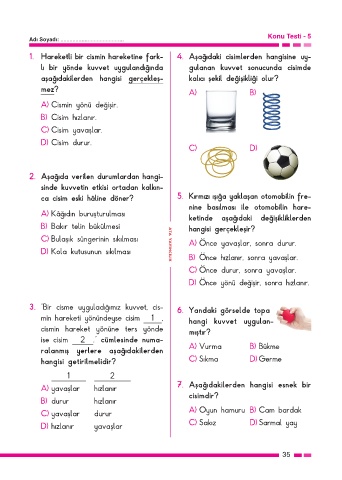 Adı Soyadı: ................................
Konu Testi - 5
1. Hareketli bir cismin hareketine fark-
lı bir yönde kuvvet uygulandığında
aşağıdakilerden hangisi gerçekleş-
mez?
A) Cismin yönü değişir.
B) Cisim hızlanır.
C) Cisim yavaşlar.
D) Cisim durur.
2. Aşağıda verilen durumlardan hangi-
sinde kuvvetin etkisi ortadan kalkın-
ca cisim eski hâline döner?
A) Kâğıdın buruşturulması
B) Bakır telin bükülmesi
C) Bulaşık süngerinin sıkılması
D) Kola kutusunun sıkılması
3. "Bir cisme uyguladığımız kuvvet, cis-
min hareketi yönündeyse cisim 1 ,
cismin hareket yönüne ters yönde
ise cisim 2 ." cümlesinde numa-
ralanmış yerlere aşağıdakilerden
hangisi getirilmelidir?
1 2
A) yavaşlar hızlanır
B) durur hızlanır
C) yavaşlar durur
D) hızlanır yavaşlar
4. Aşağıdaki cisimlerden hangisine uy-
gulanan kuvvet sonucunda cisimde
kalıcı şekil değişikliği olur?
A) B)
C) D)
5. Kırmızı ışığa yaklaşan otomobilin fre-
nine basılması ile otomobilin hare-
ketinde aşağıdaki değişikliklerden
hangisi gerçekleşir?
A) Önce yavaşlar, sonra durur.
B) Önce hızlanır, sonra yavaşlar.
C) Önce durur, sonra yavaşlar.
D) Önce yönü değişir, sonra hızlanır.
6. Yandaki görselde topa
hangi kuvvet uygulan-
mıştır?
A) Vurma B) Bükme
C) Sıkma D) Germe
7. Aşağıdakilerden hangisi esnek bir
cisimdir?
A) Oyun hamuru B) Cam bardak
C) Sakız D) Sarmal yay
35